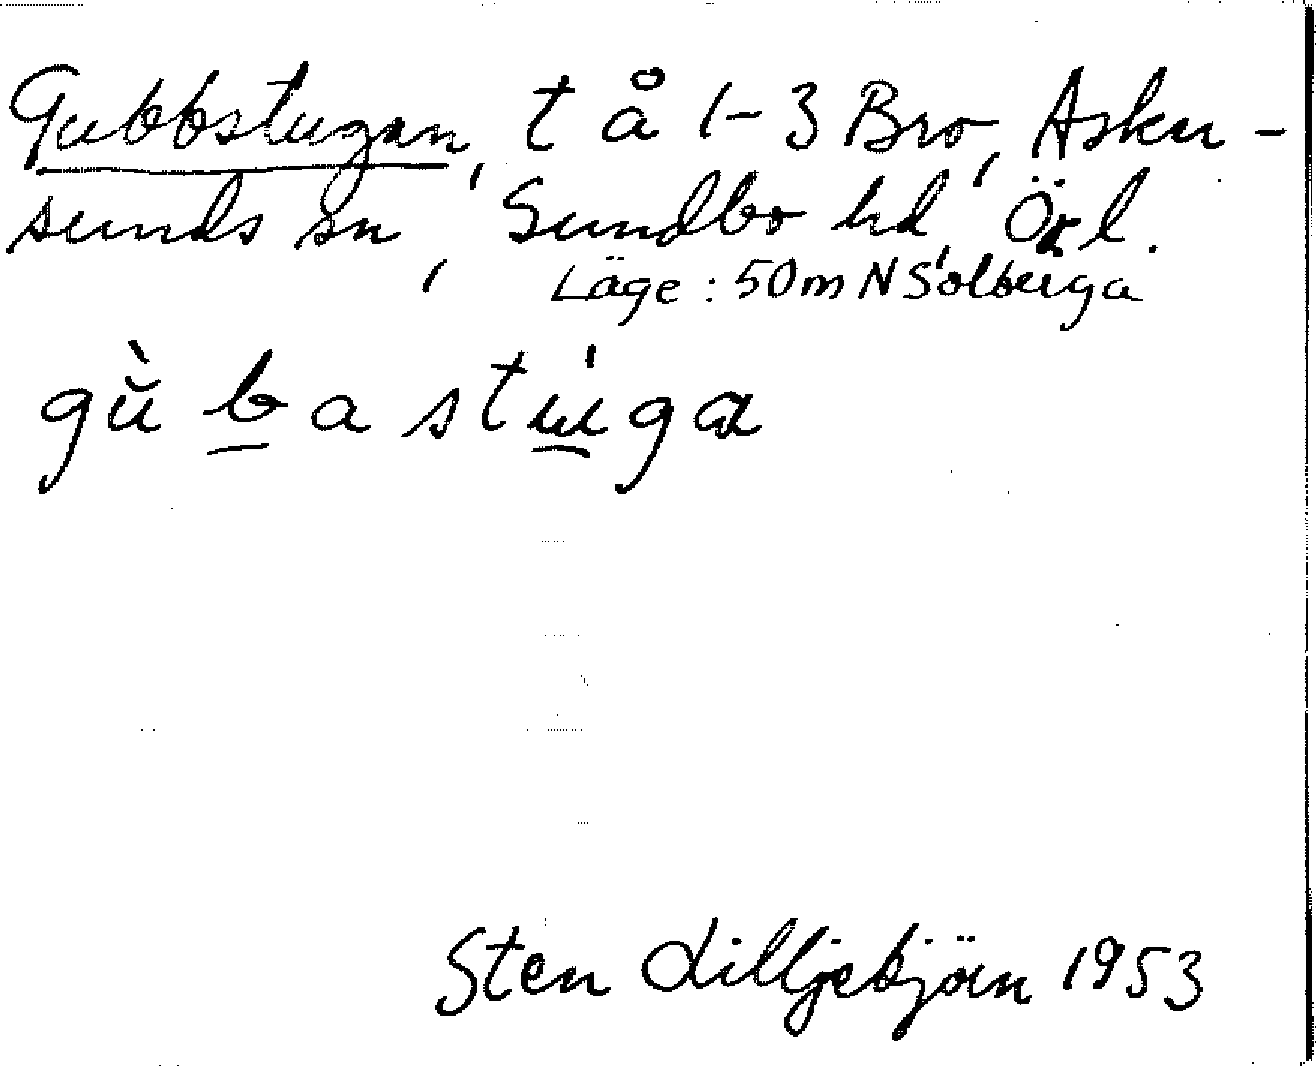 Gubbstugan, t å 1-3 Bro, Asker-
sunds sn, Sundbo hd, Ög l.
Läge : 50m N Solberga
gù̆ b̲ a st ú̲ ga
Sten Lilljebjörn 1953